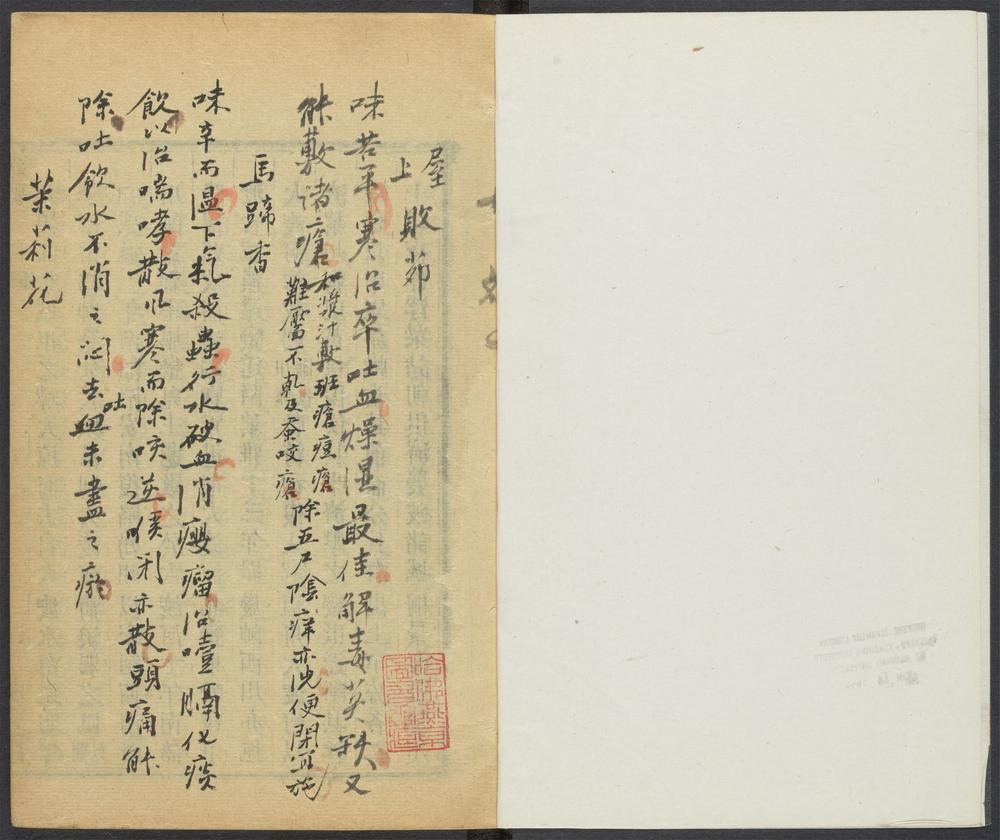 屋上敗茆
味苦平寒治卒吐血燥湿最佳解毒莫缺又
能敷諸瘡和漿汁敷班瘡痘瘡難靨不乾及蚕咬瘡除五尸陰痒亦洗便閉宜施
馬蹄香
味辛而温下氣殺蟲行水破血消癭瘤治噎膈化痰
飲以治喘哮散风寒而除咳逆喉闭亦散頭痛能
除吐飲水不消之闷去吐血未盡之瘀
茉莉花